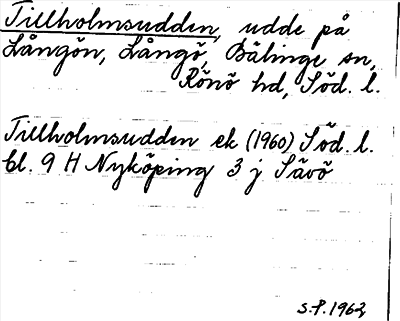 Tillholmsudden, udde på
Långön, Långö, Bälinge sn,
Rönö hd, Söd. l.
Tillholmsudden ek (1960) Söd. l.
bl. 9 H Nyköping 3 j Sävö
S.P. 1962